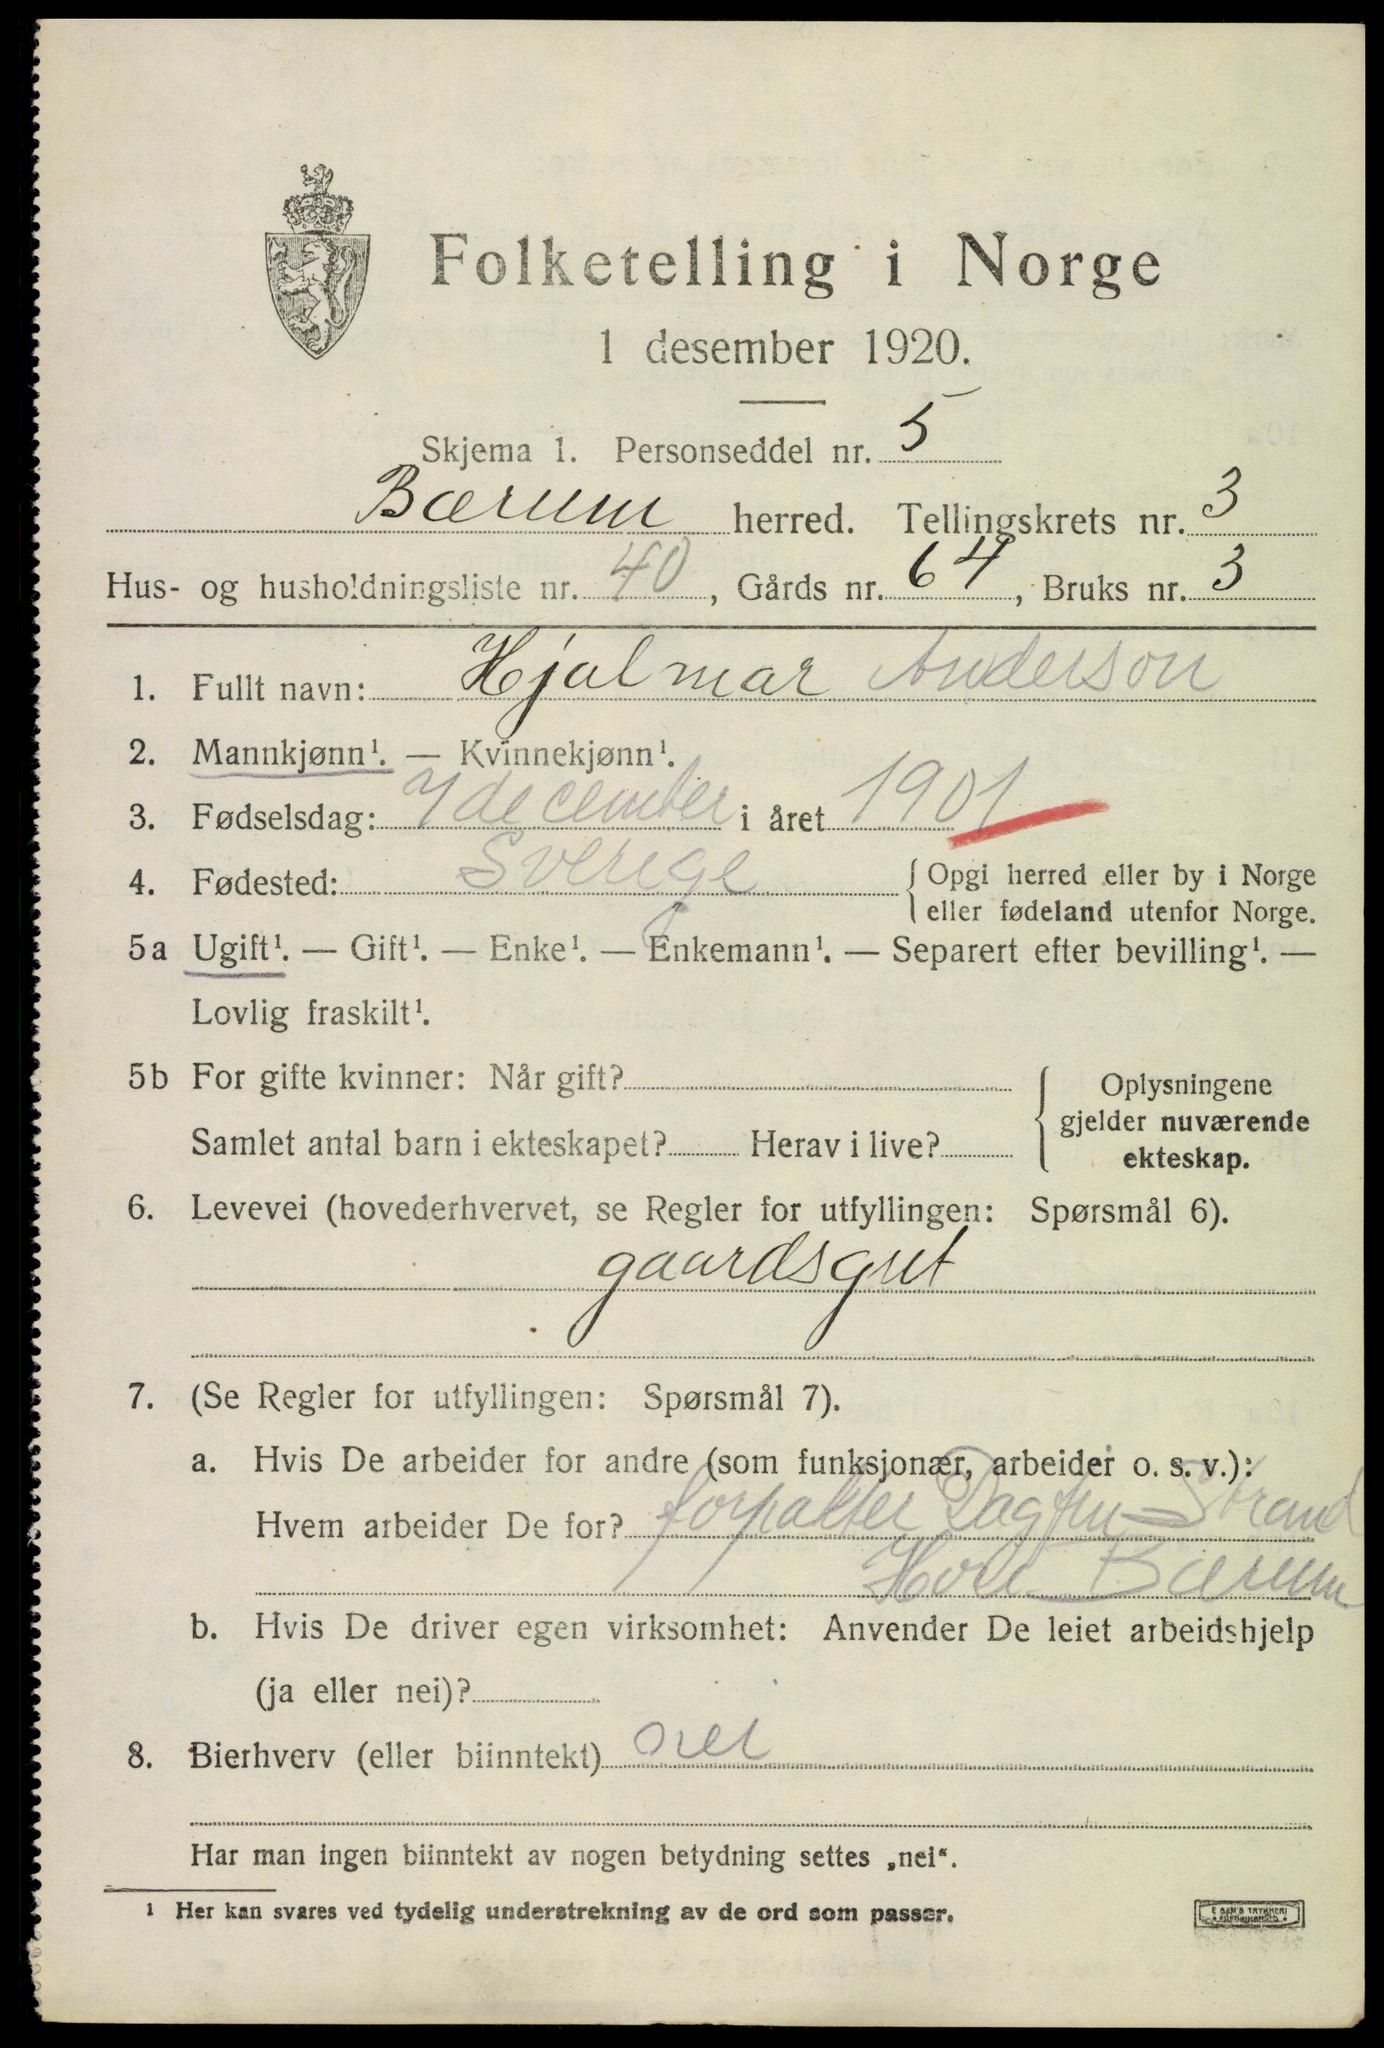 Folketelling i Norge
1 desember 1920.
Skjema 1. Personseddel nr. 5
Bærum herred. Tellingskrets nr. 3
Hus- og husholdningsliste nr. 40, Gårds nr. 64, Bruks nr. 3
1. Fullt navn: Hjalmar Anderson
2. Mannkjønn¹. — Kvinnekjønn¹.
3. Fødselsdag: 7 december i året 1901
4. Fødested: Sverige { Opgi herred eller by i Norge
eller fødeland utenfor Norge.
5a Ugift¹. — Gift¹. — Enke¹. — Enkemann¹. — Separert efter bevilling¹. —
Lovlig fraskilt¹.
5b For gifte kvinner: Når gift?
Samlet antal barn i ekteskapet? Herav i live?
{ Oplysningene
gjelder nuværende
ekteskap.
6. Levevei (hovederhvervet, se Regler for utfyllingen: Spørsmål 6).
gaardsgut
7. (Se Regler for utfyllingen: Spørsmål 7).
a. Hvis De arbeider for andre (som funksjonær, arbeider o. s. v.):
Hvem arbeider De for? forpakter Dagfin Strand
Bærum
b. Hvis De driver egen virksomhet: Anvender De leiet arbeidshjelp
(ja eller nei)?
8. Bierhverv (eller biinntekt) nei
Har man ingen biinntekt av nogen betydning settes „nei“.
¹ Her kan svares ved tydelig understrekning av de ord som passer.